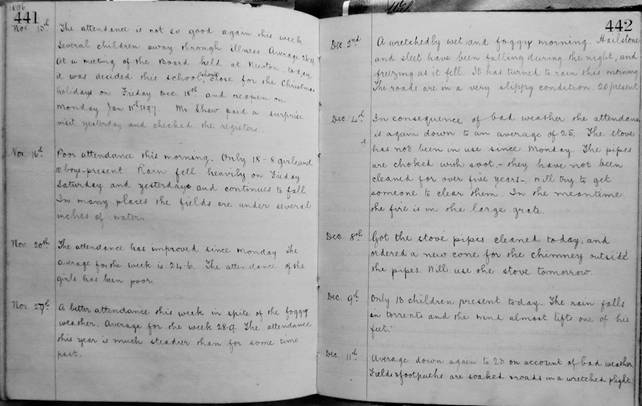 441
1896
Nov. 13th The attendance is not so good again this week
Several children away through illness. Average
At a meeting of the Board held at Newton today
it was decided this school should close for the Christmas
holidays on Friday Dec. 18th and reopen on
Monday Jan 11th 1897. Mr Shaw paid a surprise
visit yesterday and checked the registers.
Nov. 16th Poor attendance this morning. Only 18 - 8 girls and
10 boys - present Rain fell heavily on Friday
Saturday and yesterday and continues to fall
In many places the fields are under several
inches of water.
Nov. 20th The attendance has improved since Monday The
average for the week is 24.6. The attendance of the
girls has been poor.
Nov. 27th A better attendance this week in spite of the foggy
weather. Average for the week 28.9. The attendance
this year is much steadier than for some time
past.
442
Dec. 2nd A wretchedly wet and foggy morning. Hailstones
and sleet have been falling during the night, and
freezing as it fell. It has turned to rain this morning
The roads are in a very slippy condition. 20 present
Dec. 4th In consequence of bad weather the attendance
is again down to an average of 25. The stove
has not been in use since Monday. The pipes
are choked with soot, - they have not been
cleaned for over five years -. Will try to get
someone to clear them. In the meantime
the fire is in the large grate.
Dec. 8th Got the stove pipes cleaned today, and
ordered a new cone for the chimney outside
the pipes. Will use the stove tomorrow.
Dec. 9th Only 13 children present today. The rain falls
in torrents and the wind almost lifts one of his
feet.
Dec. 11th Average down again to 20 on account of bad weather
Fields & footpaths are soaked & roads in a wretched plight